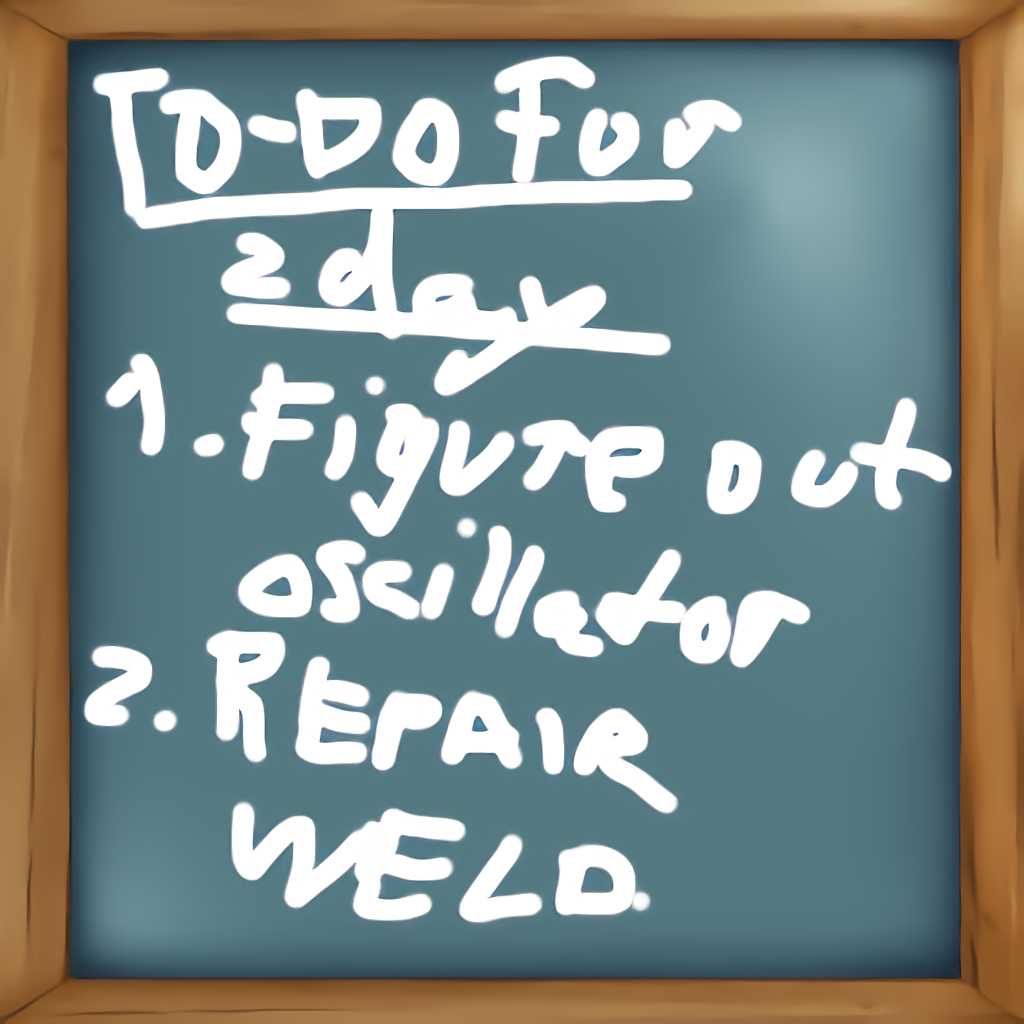 TO-DO For
2day
1. Figure out
oscillator
2. REPAIR
WELD.